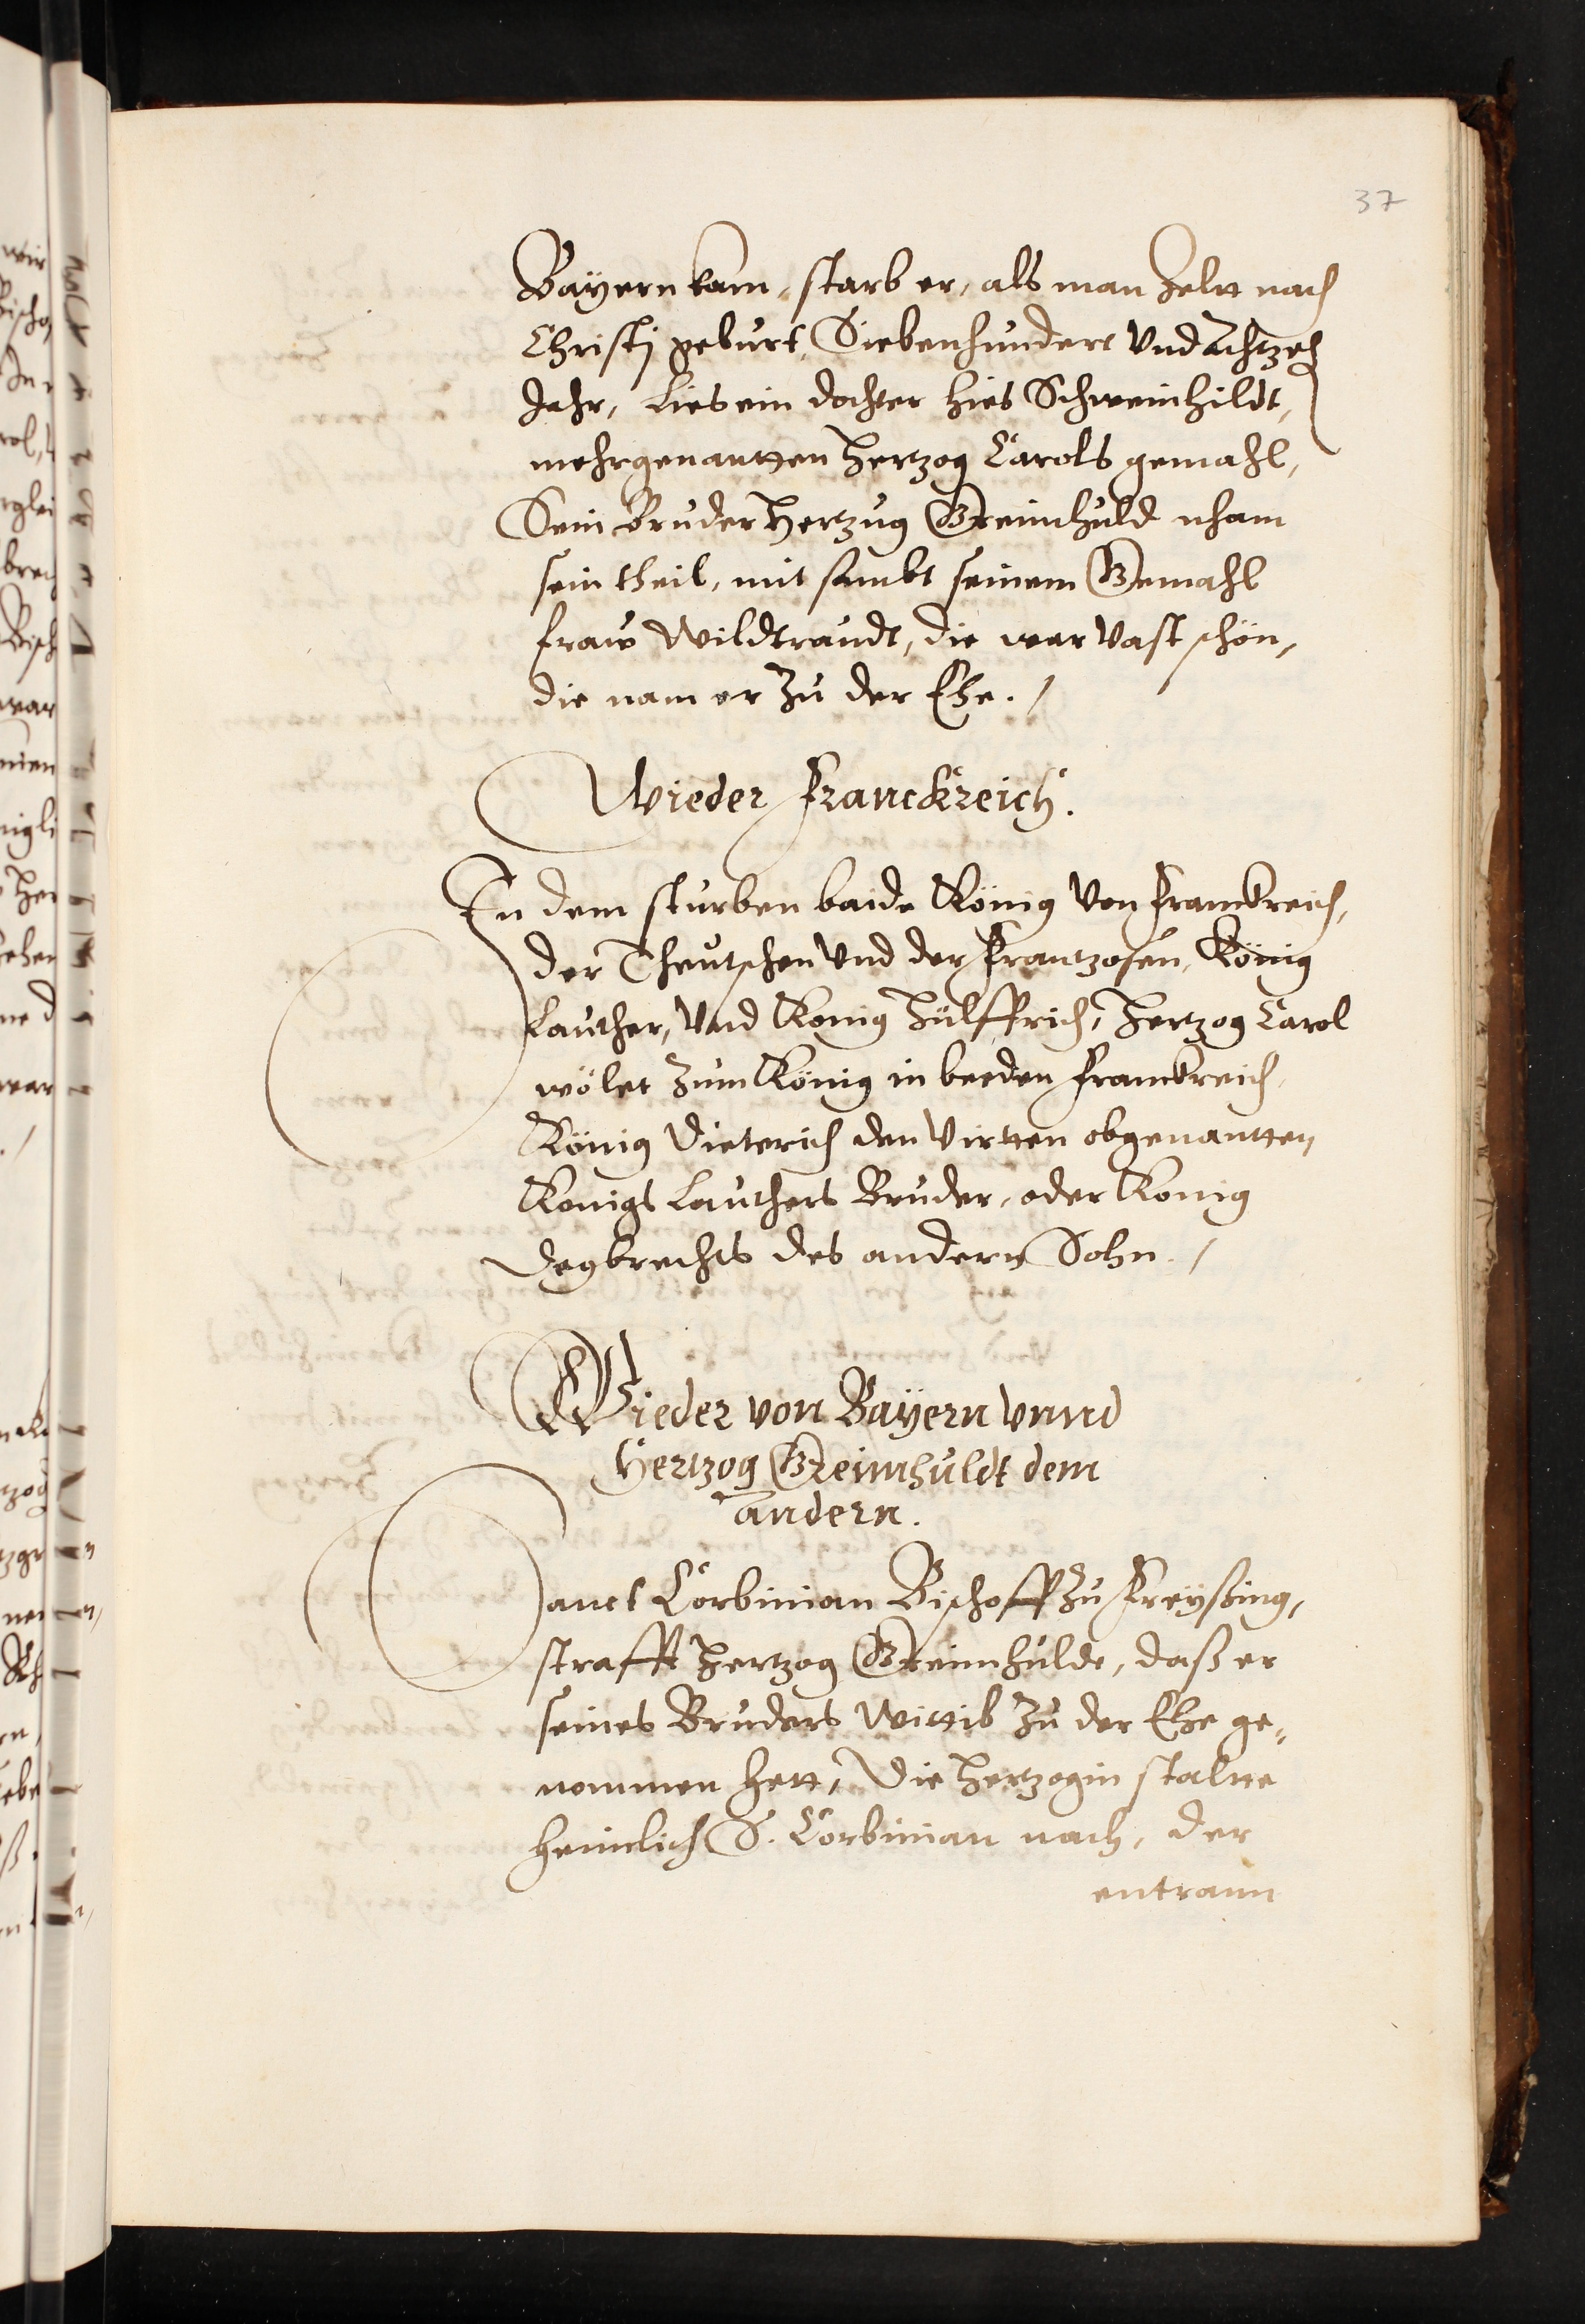 37
Bayern kam, starb er, als man Zelet nach
Christj geburt, Siebenhundert Vnd Achtzeh
Jahr, Lies ein dochter hies Schweinhildt,
mehrgenantten Hertzog Carols gemahl,
Sein Bruder Hertzug Greimhuld nham
sein theil, mit sambt seinem Gemahl
fraw Wildtraudt, die war Vast schön,
die nam er Zu der Ehe. /
Wieder Franckreich.
In dem sturben baide König Von Franckreich,
der Theutschen Vnd der Frantzosen, König
Lauther, Vnd Konig Hülffrich, Hertzog Carol
wölet Zum König in beeden Franckreich
König Dieterich den Virtten obgenantten
Konigs Lauthers Bruder, oder Konig
Degbrechts des andern Sohn. /
Wieder von Bayern vnnd
Hertzog Greimhuldt dem
andern.
Sanct Corbinian Bischoff Zu Freyßing,
strafft Hertzog Greimhulde, daß er
seines Bruders Wittib Zu der Ehe ge,
nommen hett, Die Hertzogin stalte
heimlich S. Corbinian nach, der
entrann